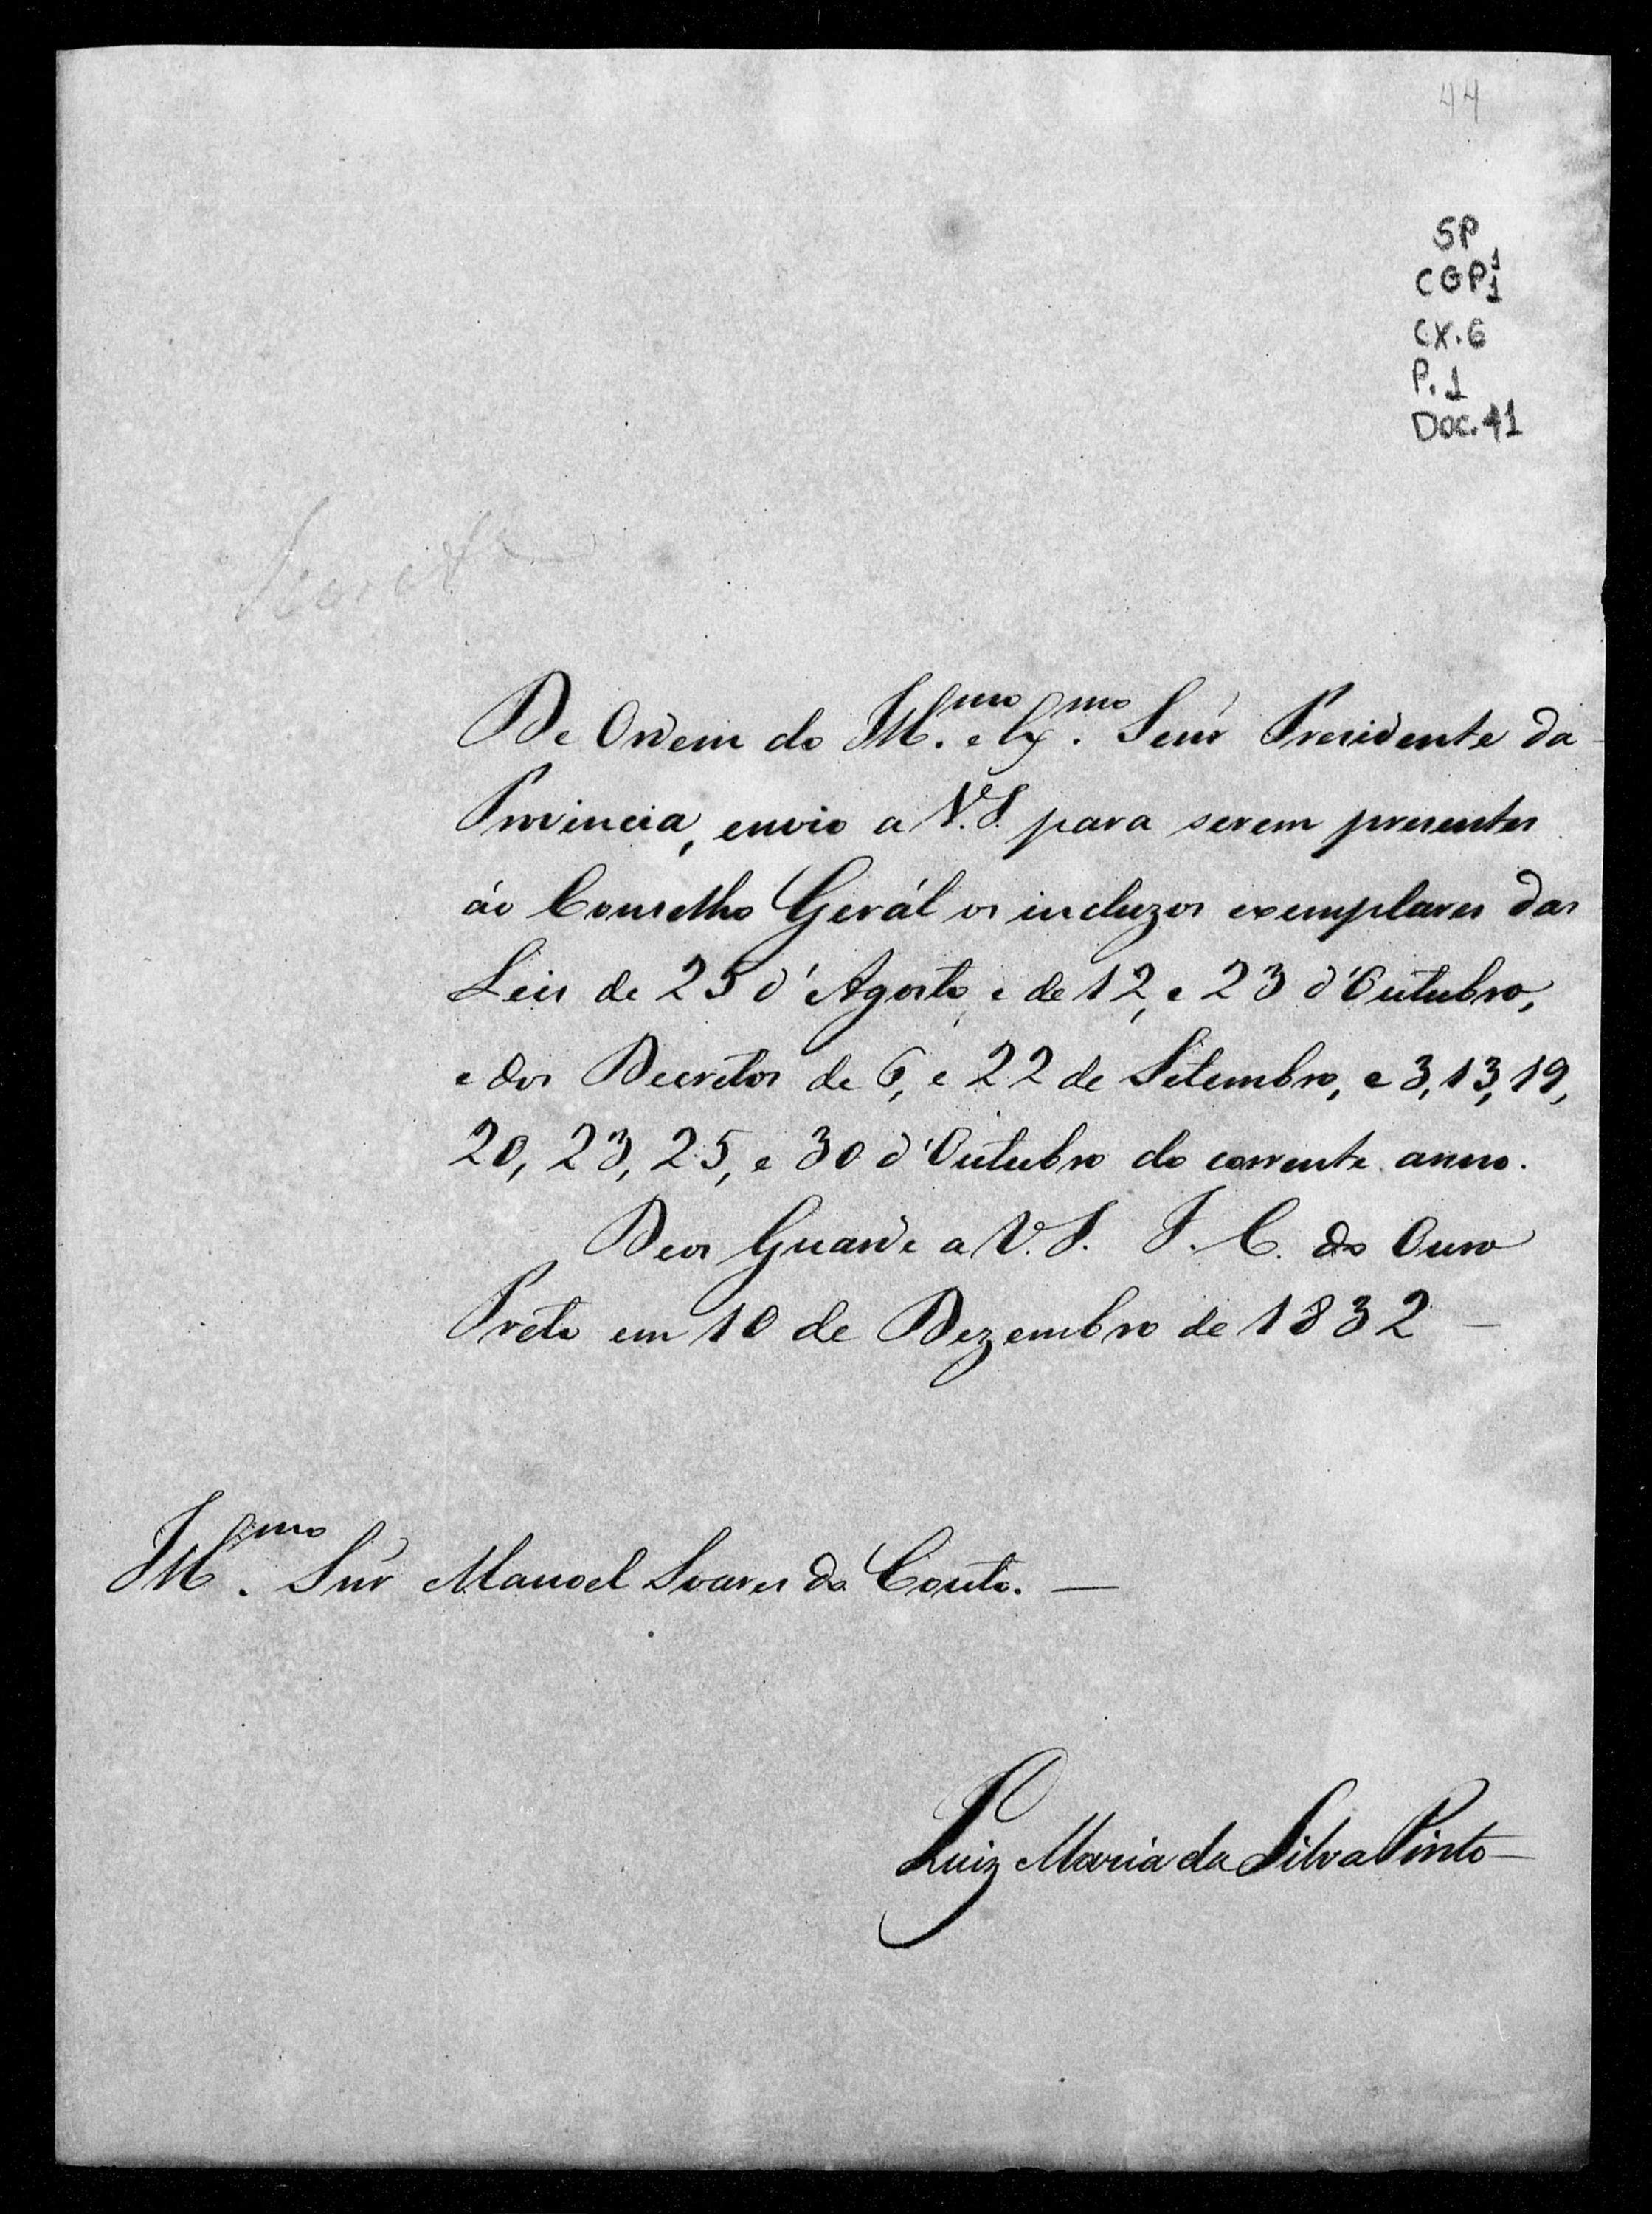 44
SP
CGP 1/1
CX.6
P. 1
Doc. 41
De Ordem do Ill.mo e Ex.mo Senr Presidente da
Provincia, envio a V.S. para serem presentes
áo Conselho Gerál os incluzos exemplares das
Leis de 25 d'Agosto, e de 12, e 23 d'Outubro,
e dos Decretos de 6, e 22 de Setembro, e 3, 13, 19,
20, 23, 25, e 30 d'Outubro do corrente anno.
Deos Guarde a V. S. I. C. do Ouro
Preto em 10 de Dezembro de 1832
Ill.mo Snr Manoel Soares do Couto.
Luiz Maria da Silva Pinto